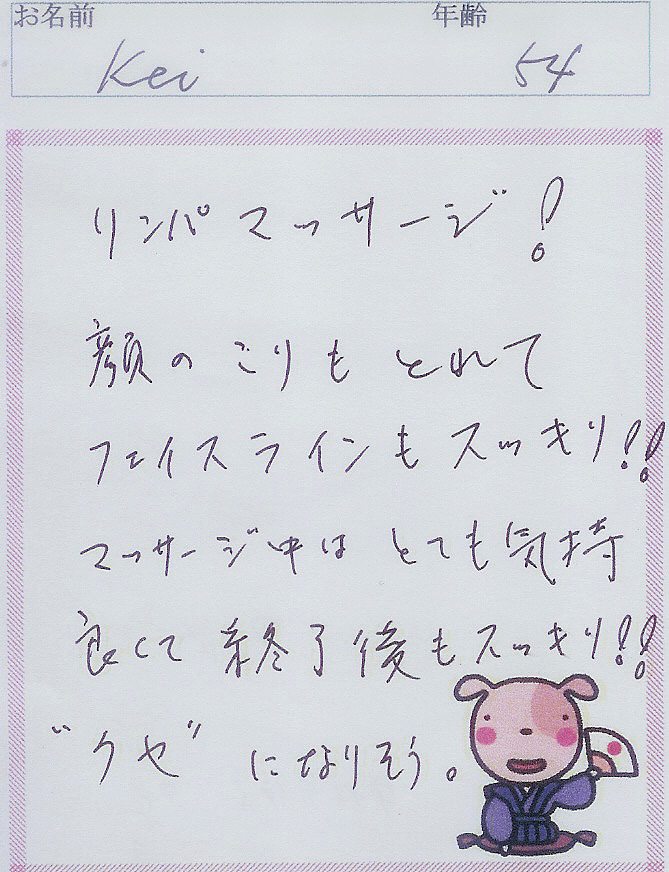 お名前 年齢
Kei 54
リンパマッサージ!
顔のこりもとれて
フェイスラインもスッキリ!!
マッサージ中はとても気持
良くて終了後もスッキリ!!
"クセ"になりそう。